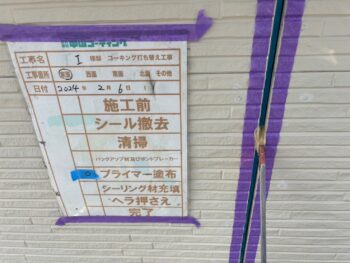 工事名 I 様邸 コーキング打ち替え工事
工事箇所 東面 西面 南面 北面 その他
日付 2024年 2月 6日
施工前
シール撤去
清掃
バックアップ材及びボンドブレーカー
プライマー塗布
シーリング材充填
ヘラ押さえ
完了